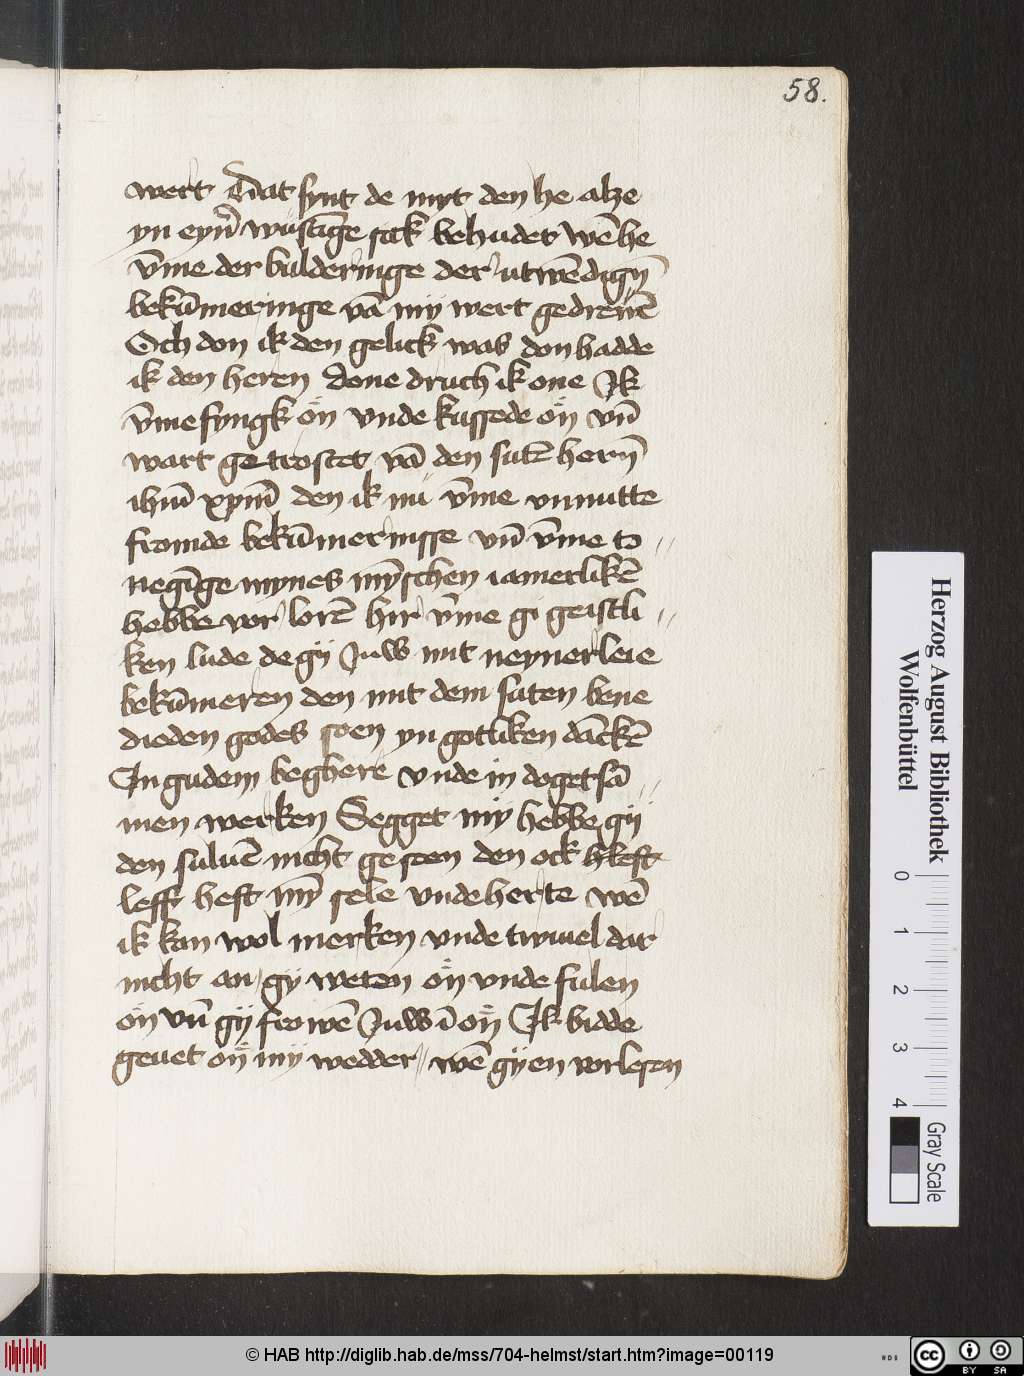 58.
wert Dat synt de myt den he alze
yn eyn̄ wustīge sick behudet wē he
v̄me der bulderinge der utwēdigȳ
bekūmeringe vā mÿ wert gedreuē
Och don ik den gelick was don hadde
ik den heren done druch ik one Ik
v̄me fyngk on̄ vnde kussede on̄ vn̄
wart getrostet vā den sutē hern̄
ihm̄ xpm̄ den ik nu v̄me vnnutte
fromde bekūmernisse vn̄ v̄me to
negīge mynes mȳschen iamerlikē
hebbe vor lorē hir v̄me gi geistli
ken lude de gÿ Juw mit neynerleie
bekūmeren den mit dem suten bene
dieden godes soen yn gotliken dāckē
In gudem beghere vnde in dogetsā
men werken Segget mÿ hebbe gÿ
den suluē nicht geseen den ock hleft
leff heft mȳ sele vnde herte wē
ik kan wol merken vnde twiuel dar
nicht an / gÿ weten on̄ vnde fulen
on̄ vn̄ gÿ frowē Juw ī on̄ Ik bidde
geuet on̄ mÿ wedder // wē gÿ en vorlesen
Herzog August Bibliothek
Wolfenbüttel
0
1
2
3
4
Gray Scale
© HAB http://diglib.hab.de/mss/704-helmst/start.htm?image=00119
HAB
cc
BY SA